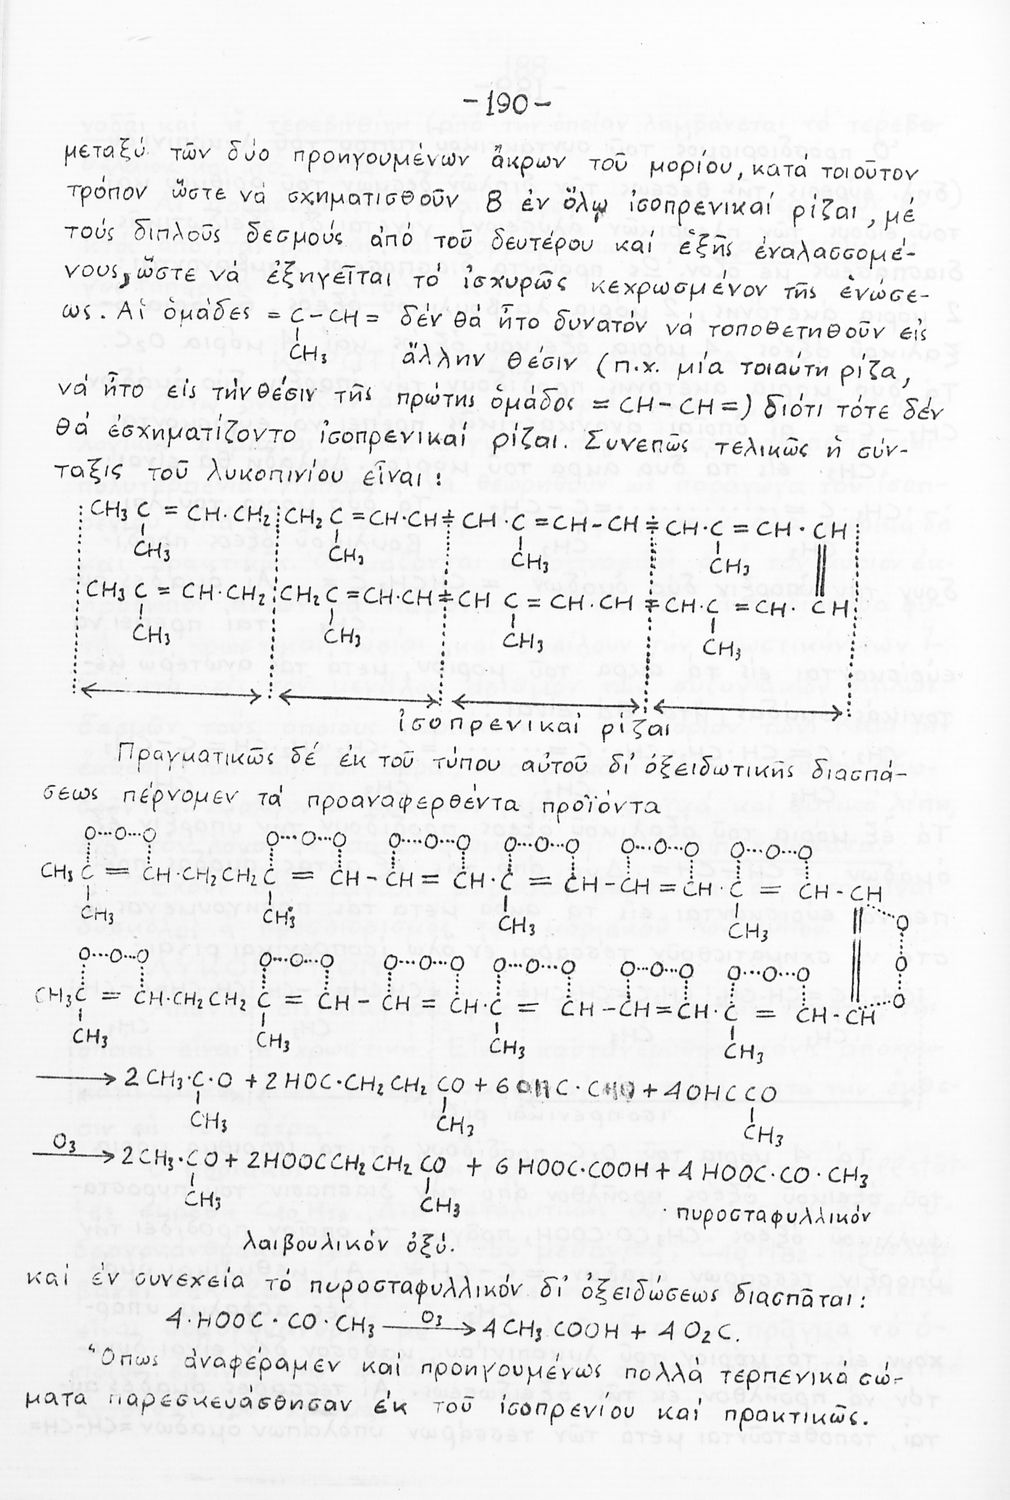 -190-
μεταξύ τῶν δύο προηγουμένων ἄκρων τοῦ μορίου, κατά τοιοῦτον
τρόπον ὥστε νά σχηματισθοῦν 8 ἐν ὅλῳ ἰσοπρενικαί ρίζαι, μέ
τούς διπλοῦς δεσμούς ἀπό τοῦ δευτέρου καί ἑξῆς ἐναλασσομέ-
νους, ὥστε νά ἐξηγεῖται τό ἰσχυρῶς κεχρωσμένον τῆς ἑνώσε-
ως. Αἱ ὁμάδες = C - CH = δέν θά ἦτο δυνατόν νά τοποθετηθοῦν εἰς
CH₃ ἄλλην θέσιν (π.χ. μία τοιαύτη ρίζα,
νά ἦτο εἰς τήν θέσιν τῆς πρώτης ὁμάδος = CH - CH =) διότι τότε δέν
θά ἐσχηματίζοντο ἰσοπρενικαί ρίζαι. Συνεπῶς τελικῶς ἡ σύν-
ταξις τοῦ λυκοπινίου εἶναι:
CH₃ C = CH·CH₂ CH₂ C = CH·CH = CH·C = CH - CH = CH·C = CH·CH
CH₃ CH₃ CH₃ CH₃
CH₃ C = CH·CH₂ CH₂ C = CH·CH = CH C = CH·CH = CH·C = CH·CH
CH₃ CH₃ CH₃ CH₃
ἰσοπρενικαί ρίζαι
Πραγματικῶς δέ ἐκ τοῦ τύπου αὐτοῦ δι' ὀξειδωτικῆς διασπά-
σεως πέρνομεν τά προαναφερθέντα προϊόντα
O···O···O O···O···O O···O···O O···O···O O···O···O O···O···O
CH₃ C = CH·CH₂CH₂ C = CH - CH = CH·C = CH - CH = CH·C = CH - CH
CH₃ CH₃ CH₃ CH₃ O
O···O···O O···O···O O···O···O O···O···O O···O···O O···O···O O
CH₃C = CH·CH₂CH₂ C = CH - CH = CH·C = CH - CH = CH·C = CH - CH O
CH₃ CH₃ CH₃ CH₃
→ 2 CH₃·C·O + 2 HOC·CH₂ CH₂ CO + 6 OHC·CHO + 4 OHC CO
CH₃ CH₃ CH₃
O₃ → 2 CH₃·CO + 2 HOOCCH₂ CH₂ CO + 6 HOOC·COOH + 4 HOOC·CO·CH₃
CH₃ CH₃ πυροσταφυλλικόν
λαιβουλικόν ὀξύ.
καί ἐν συνεχεία τό πυροσταφυλλικόν δι' ὀξειδώσεως διασπᾶται:
4·HOOC·CO·CH₃ O₃ → 4 CH₃ COOH + 4 O₂C.
Ὅπως ἀναφέραμεν καί προηγουμένως πολλά τερπενικά σώ-
ματα παρεσκευάσθησαν ἐκ τοῦ ἰσοπρενίου καί πρακτικῶς.